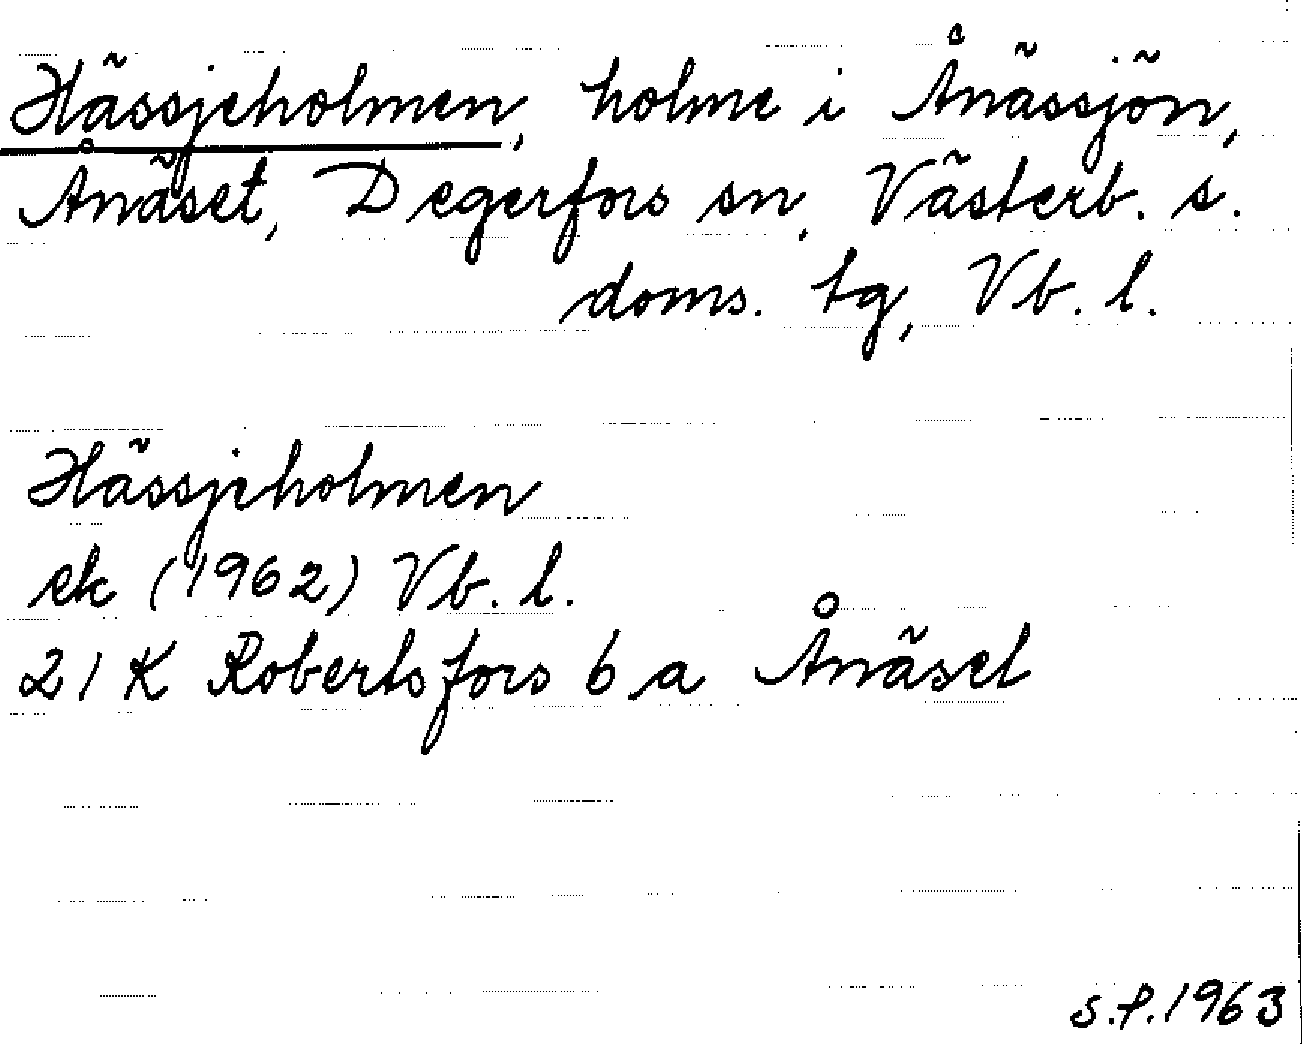 Hässjeholmen, holme i Ånässjön,
Ånäset, Degerfors sn, Västerb. s.
doms. tg, Vb. l.
Hässjeholmen
ek (1962) Vb. l.
21 K Robertsfors 6 a Ånäset
S.P. 1963